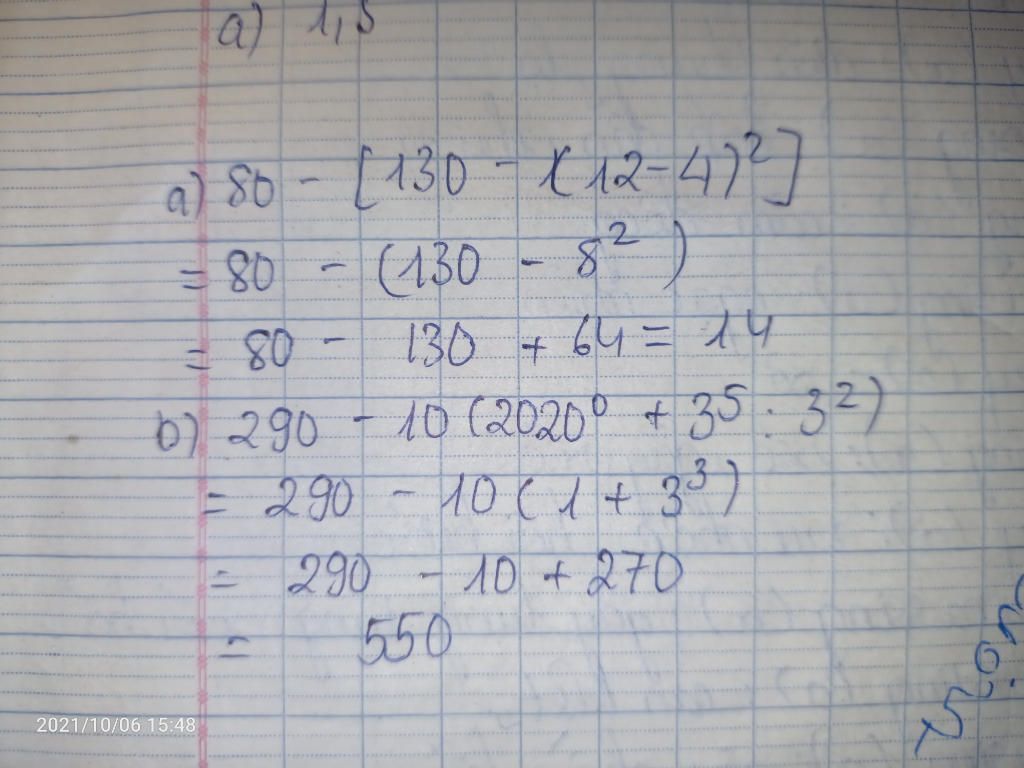 a) 1,5
a) 80 - [130 - (12-4)²]
= 80 - (130 - 8²)
= 80 - 130 + 64 = 14
b) 290 - 10 (2020⁰ + 3⁵ : 3²)
= 290 - 10 (1 + 3³)
= 290 - 10 + 270
= 550
2021/10/06 15:48